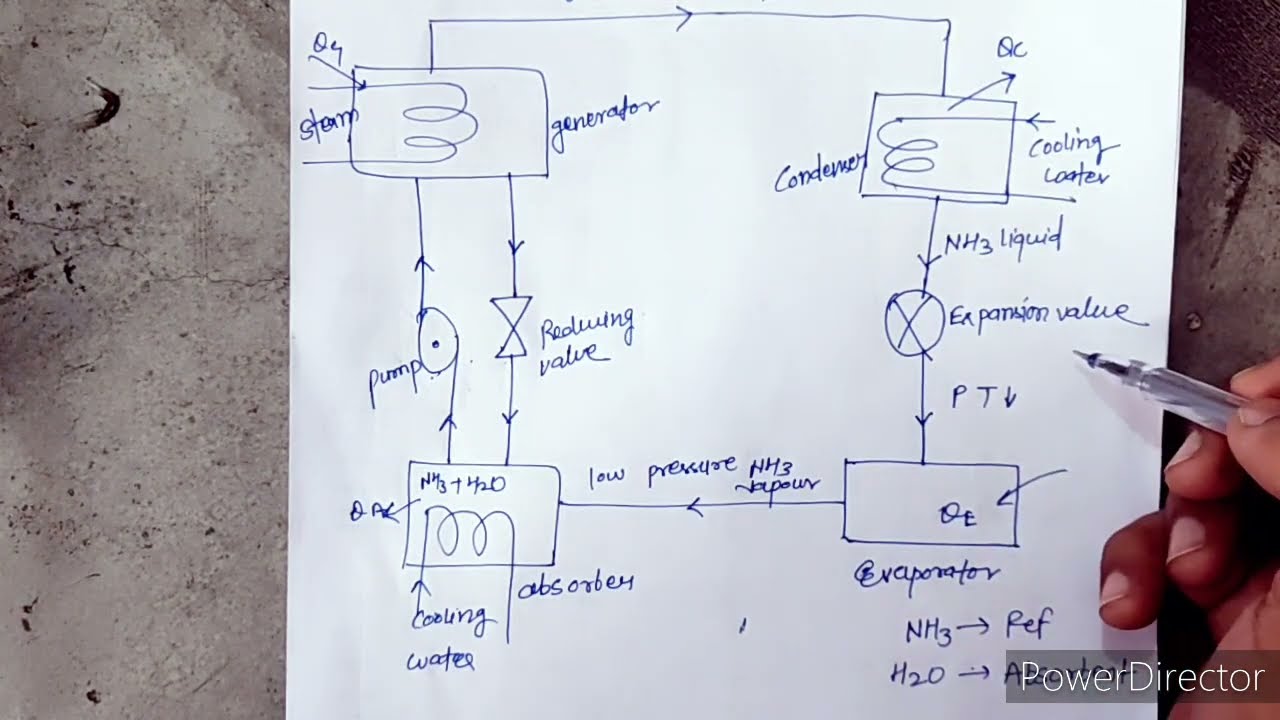 QG
steam
generator
QC
Condenser
Cooling
water
NH3 liquid
Expansion value
P T↓
pump
Reducing
valve
NH3+H2O
QA
low pressure NH3
vapour
QE
absorber
Cooling
water
Evaporator
NH3 → Ref
H2O → Absorbent
PowerDirector